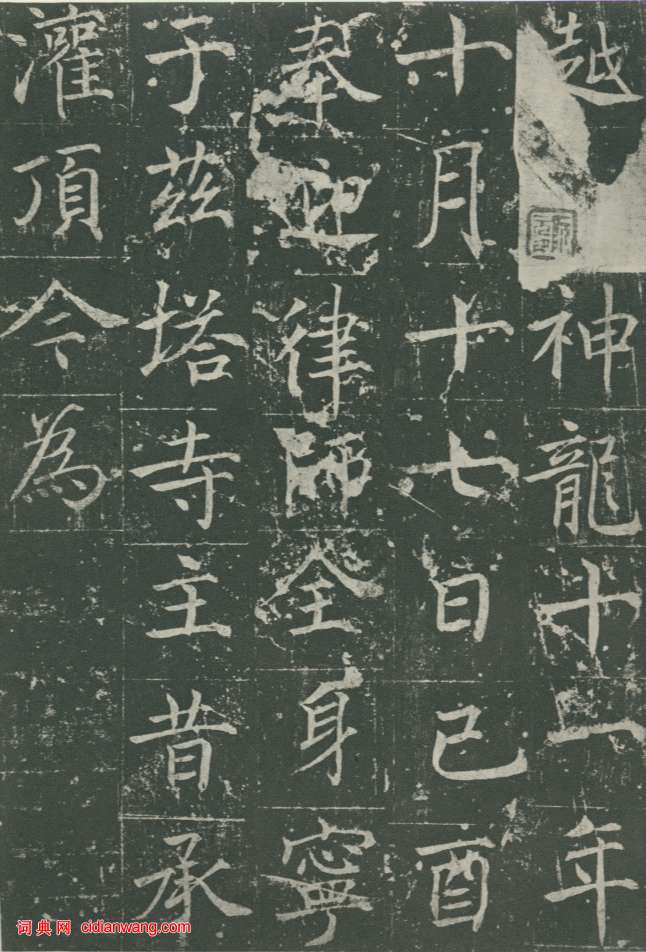 越神龍十一年
十月十七日己酉
奉迎律師全身寧
于茲塔寺主昔承
灌頂今為
词典网 cidianwang.com